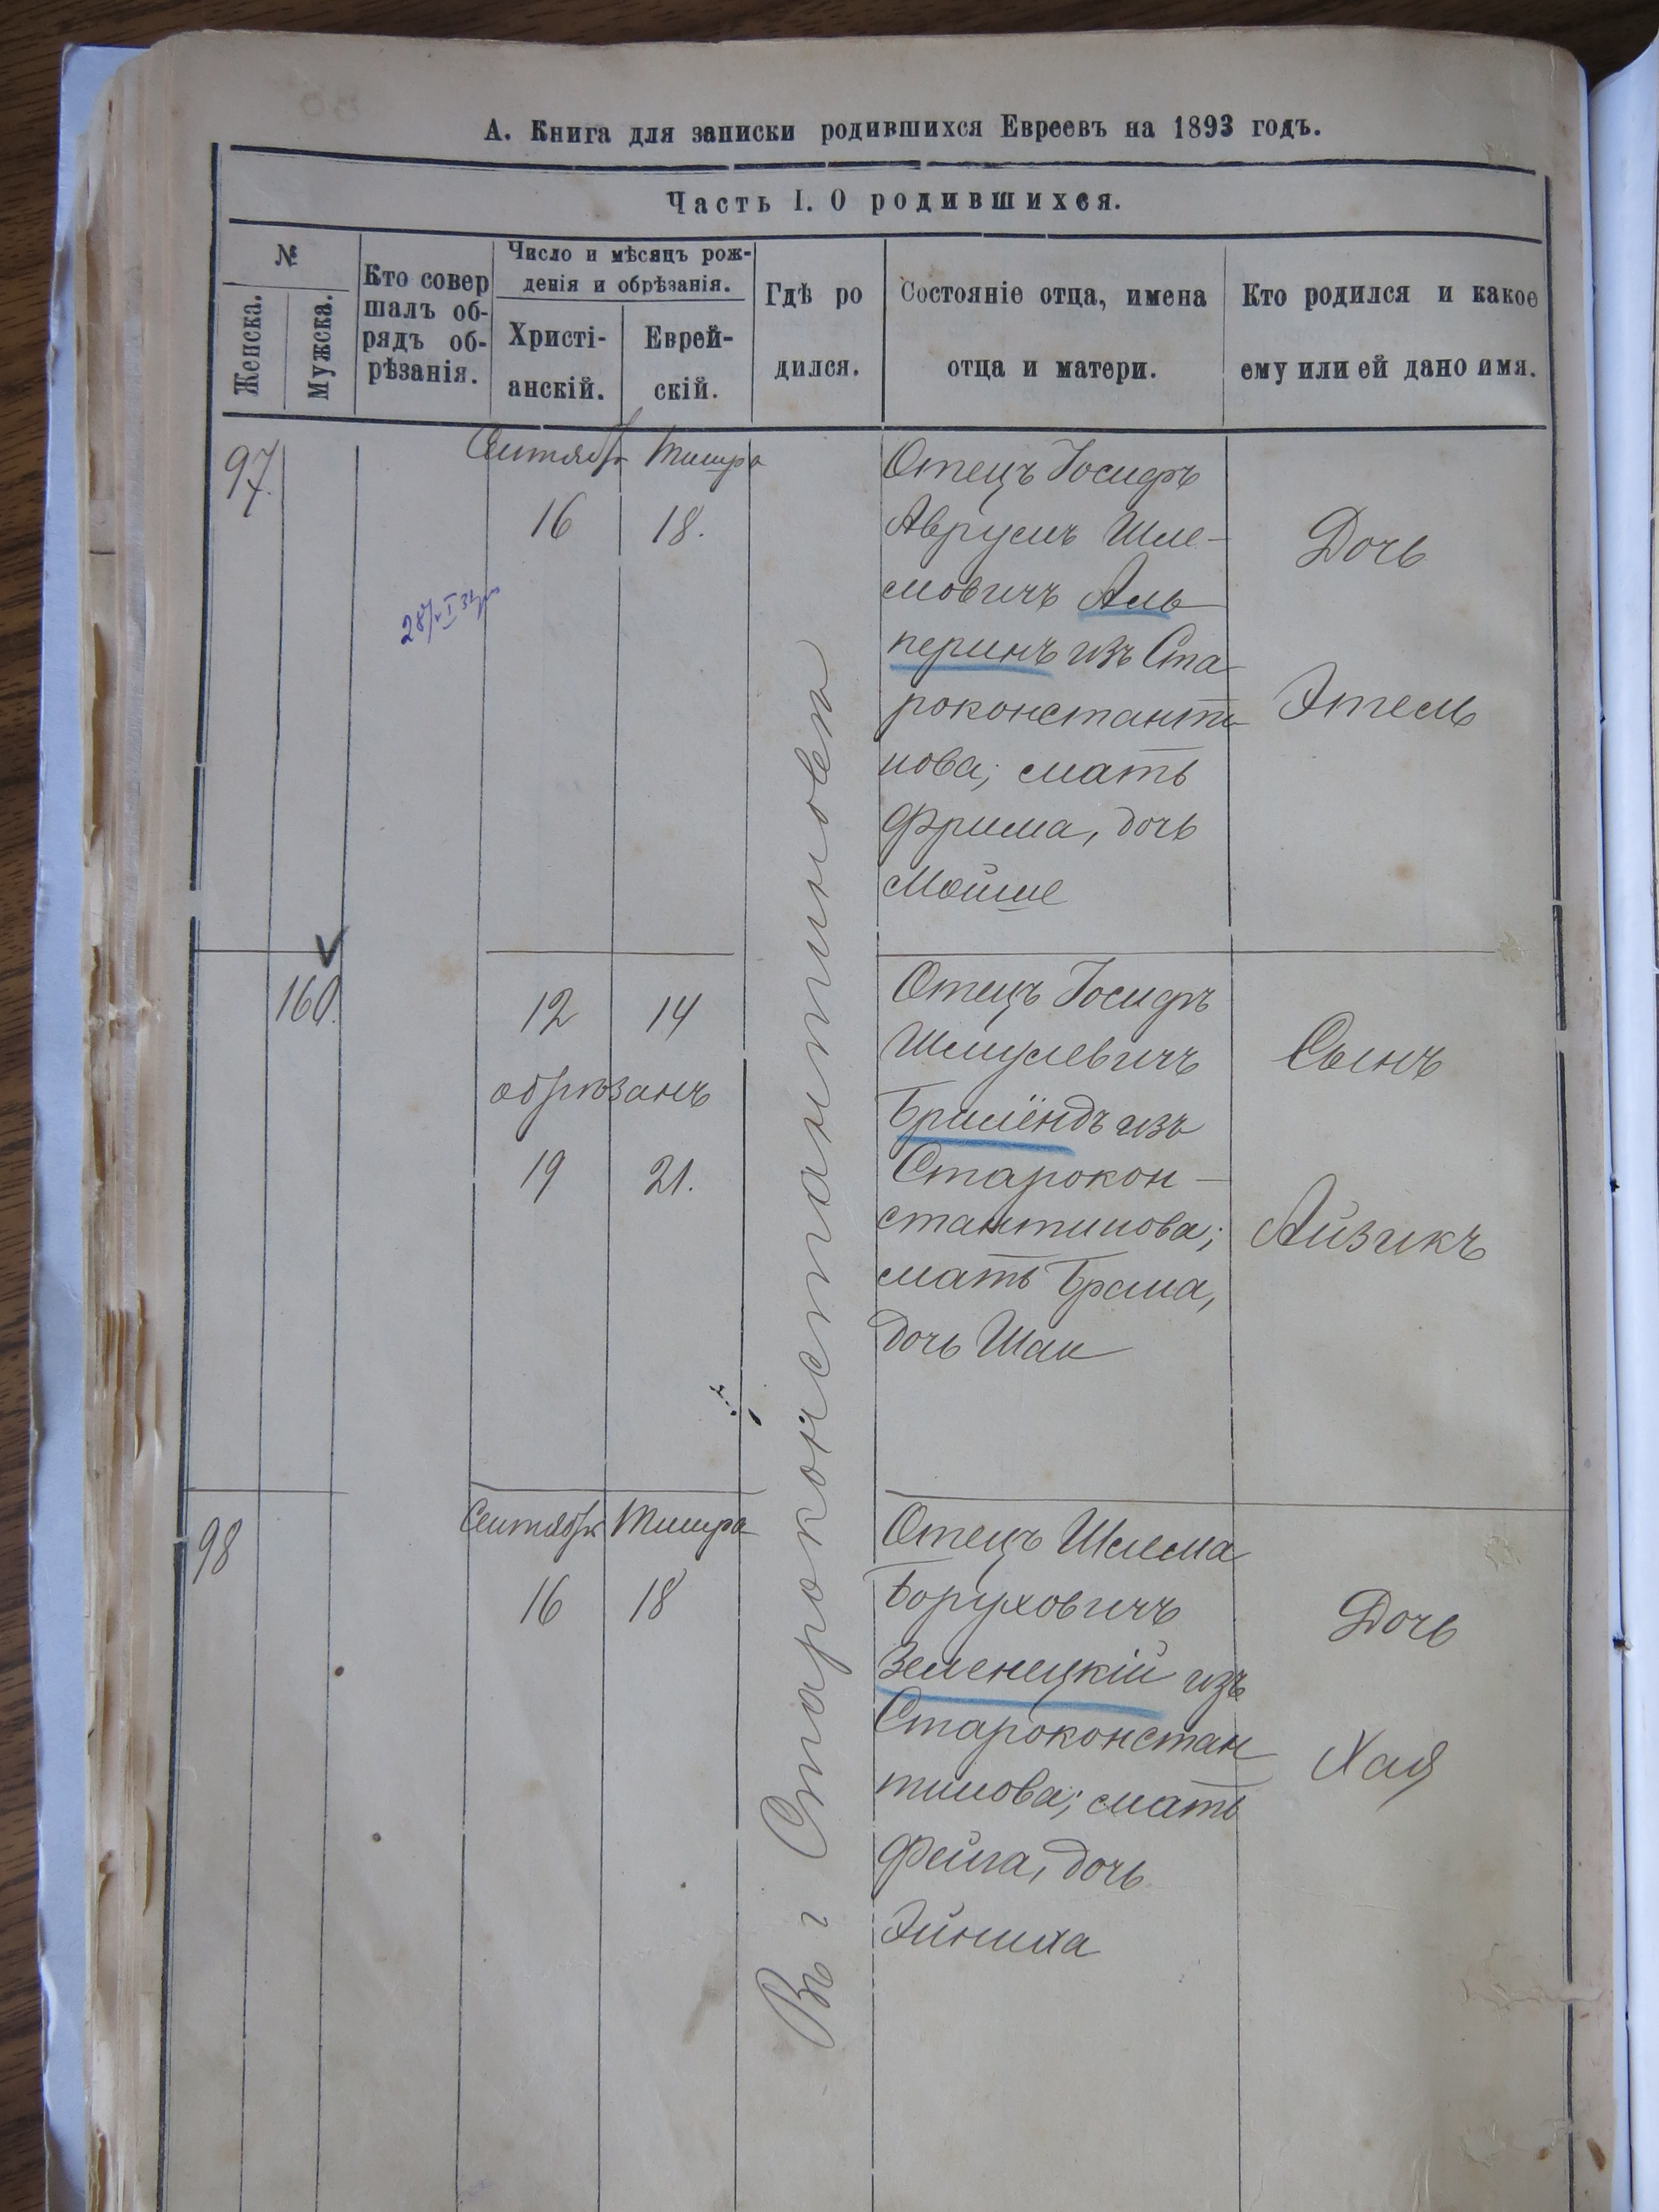 А. Книга для записки родившихся Евреевъ на 1893 годъ.
Часть I. О родившихся.
№
Женска.
Мужска.
Кто совер
шалъ об-
рядъ об-
рѣзанія.
Число и мѣсяцъ рож-
денія и обрѣзанія.
Христі-
анскій.
Еврей-
скій.
Гдѣ ро
дился.
Состояніе отца, имена
отца и матери.
Кто родился и какое
ему или ей дано имя.
97.
Сентябрь Тишра
16 18.
Въ г Староконстантиновѣ
Отецъ Іосифъ
Аврумъ Шле-
мовичъ Аль
перинъ изъ Ста
роконстанти
нова; мать
Фрима, дочь
Мойше
Дочь
Этель
160.
12 14
обрѣзанъ
19 21.
Отецъ Іосифъ
Шмулевичъ
изъ
Старокон-
стантинова;
мать
дочь Шаи
Сынъ
Айзикъ
98
Сентябрь Тишра
16 18
Отецъ Шлема
Боруховичъ
Зеленецкій изъ
Староконстан
тинова; мать
Фейга, дочь
Эйниха
Дочь
Хая